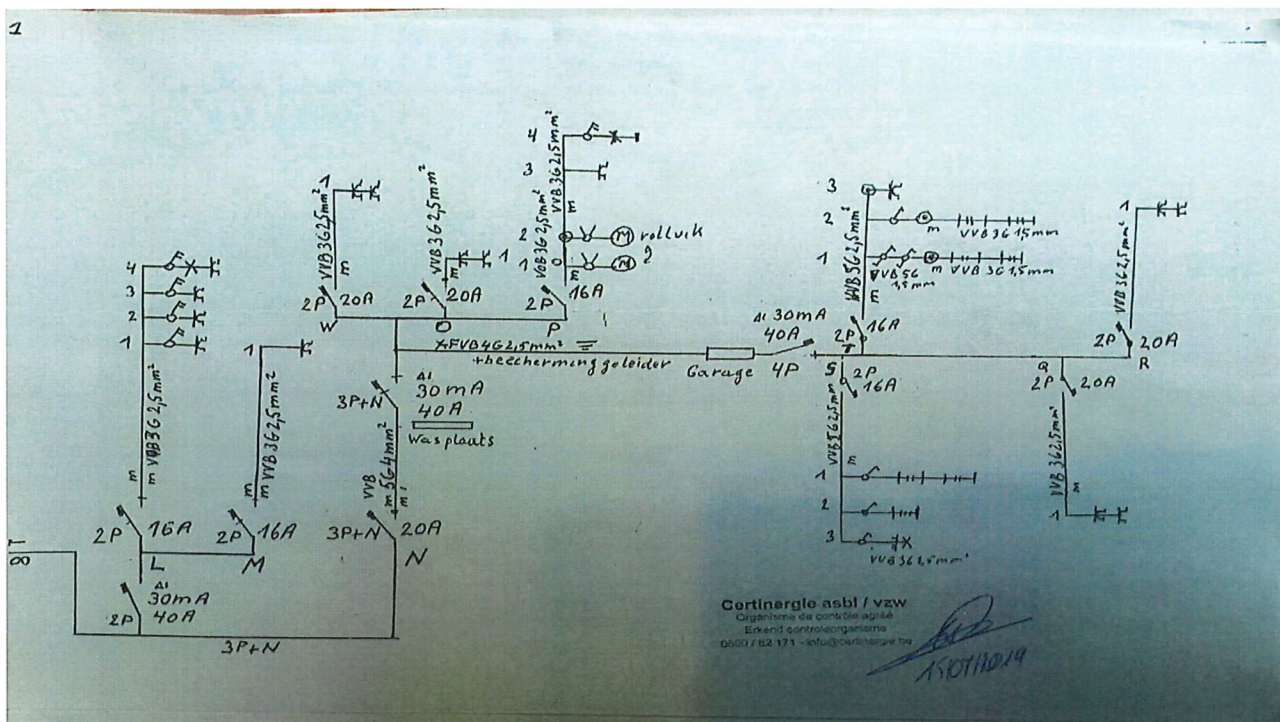 1
4
3
2
1
m VVB 3G 2,5mm²
m
2P 16A
L
1
m VVB 3G 2,5mm²
m
2P 16A
M
Δ1
30mA
40A
2P
3P+N
1
VVB 3G 2,5mm²
m
2P 20A
W
VVB 3G 2,5mm²
1
m
2P 20A
O
4
3
2
1
VVB 3G 2,5mm²
m
VVB 3G 2,5mm²
m
M rolluik
M 2
2P 16A
P
XFVB 4G 2,5mm²
+bescherming geleider
Δ1
30mA
40A
3P+N
Wasplaats
VVB
m 5G4mm²
m
3P+N 20A
N
Garage
Δ1 30mA
40A
4P
3
2
1
VVB 5G 2,5mm²
m
m VVB 3G 1,5mm
VVB 5G
1,5mm
m VVB 3G 1,5mm
2P 16A
T
S 2P
16A
VVB 5G 2,5mm²
m
1
2
3
VVB 3G 1,5mm²
Q
2P 20A
VVB 3G 2,5mm²
m
1
1
VVB 3G 2,5mm²
2P 20A
R
Certinergie asbl / vzw
Organisme de contrôle agréé
Erkend controleorganisme
0800 / 82 171 - info@certinergie.be
15/07/2019